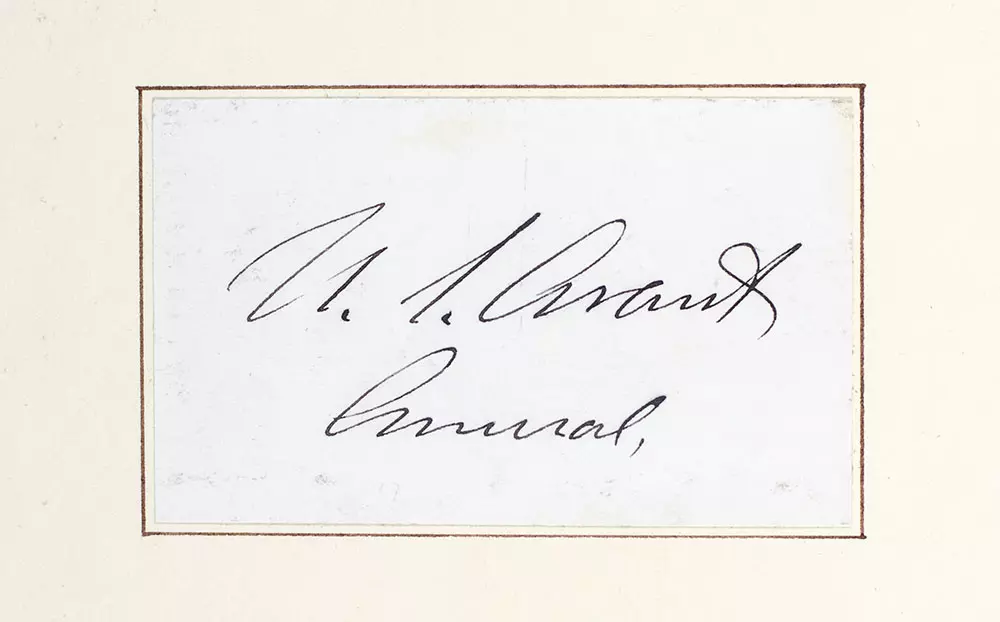 U. S. Grant
General,